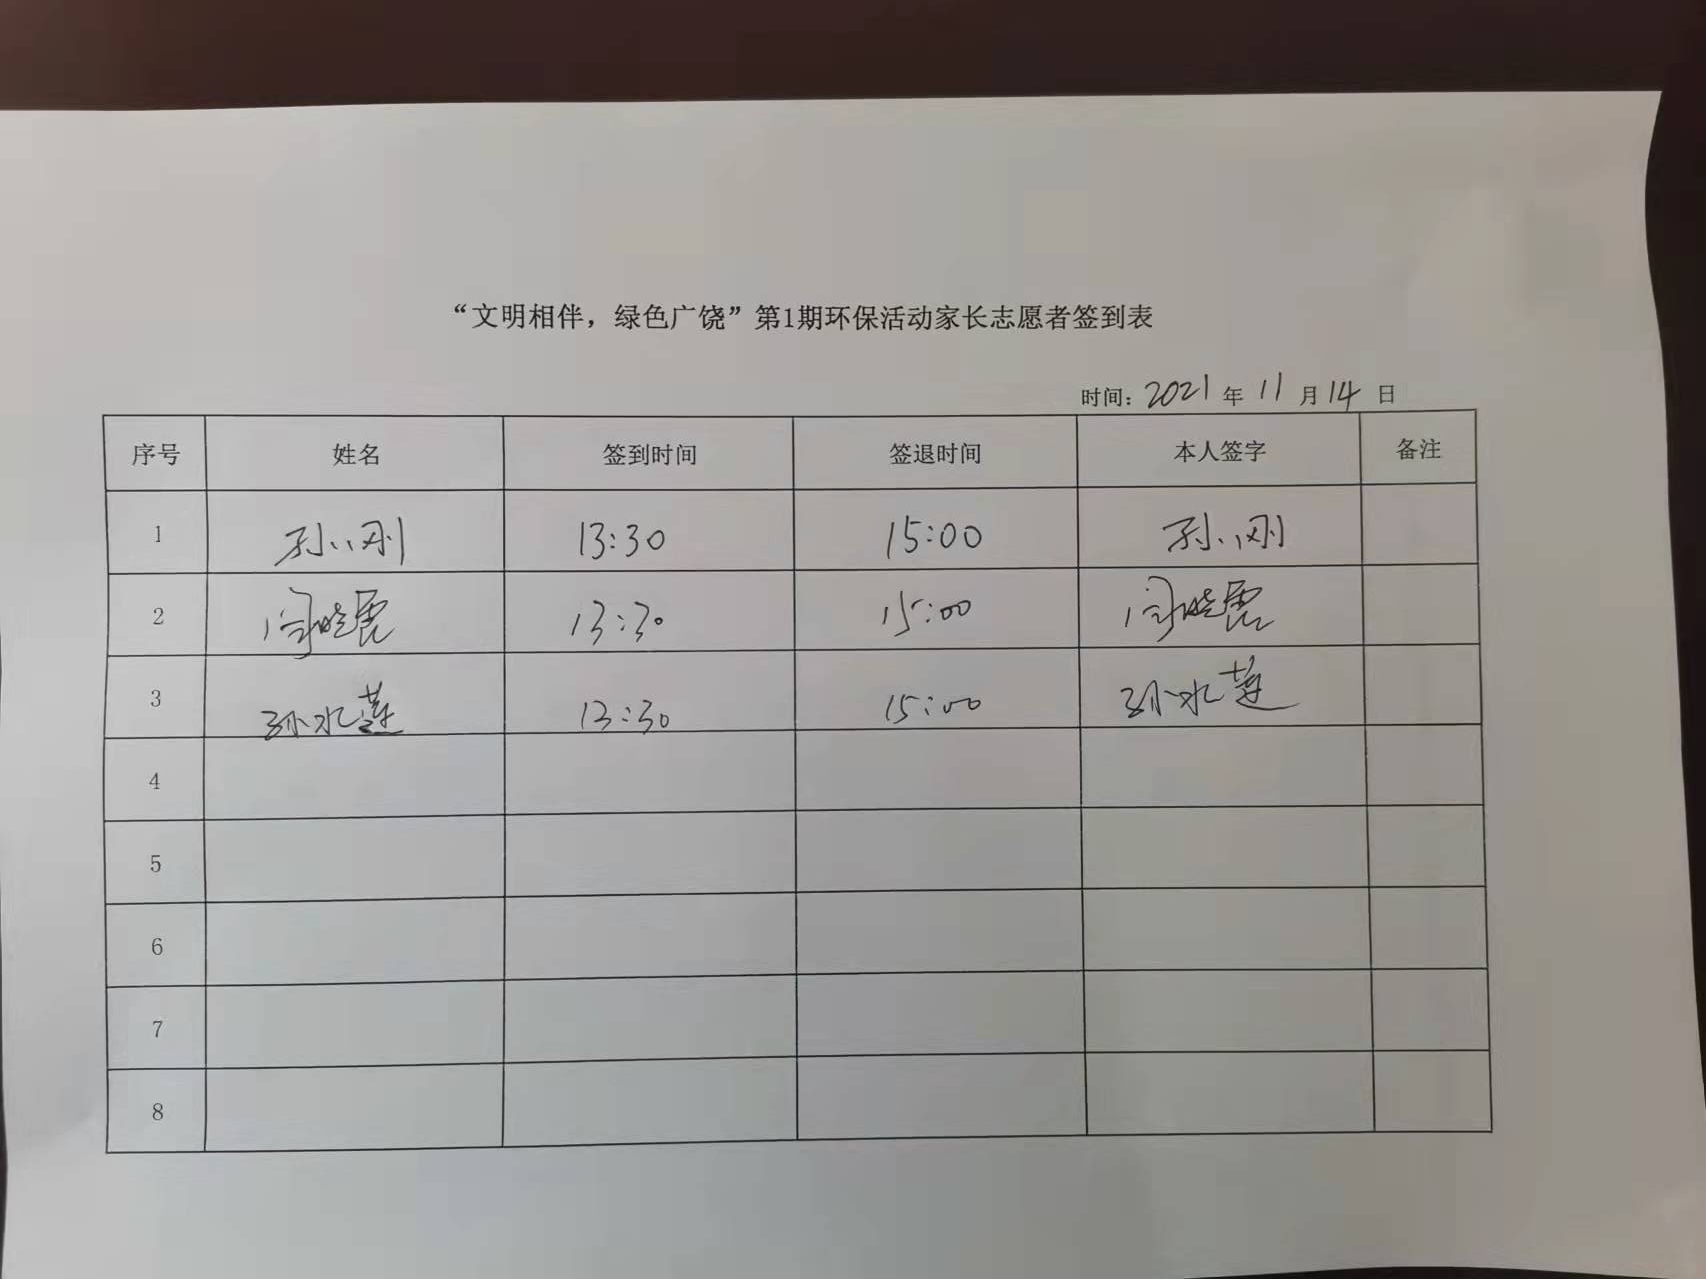 “文明相伴，绿色广饶”第1期环保活动家长志愿者签到表
时间：2021年11月14日
序号 姓名 签到时间 签退时间 本人签字 备注
1 孙小刚 13:30 15:00 孙小刚
2 闫晓霞 13:30 15:00 闫晓霞
3 孙水莲 13:30 15:00 孙水莲
4
5
6
7
8